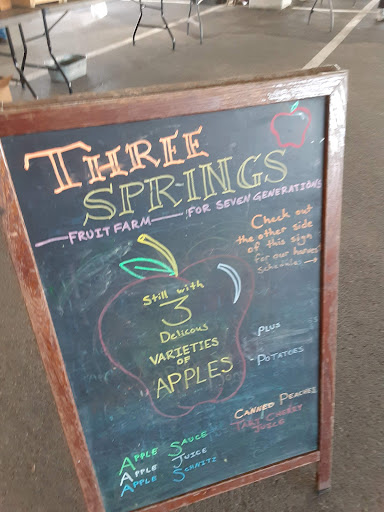 THREE
SPRINGS
FRUIT FARM — FOR SEVEN GENERATIONS
Check out
the other side
of this sign
for our harvest
schedule →
Still with
3
Delicous
VARIETIES
OF
APPLES
PLUS
- POTATOES
CANNED PEACHES
TART CHERRY
JUICE
APPLE SAUCE
APPLE JUICE
APPLE SCHNITZ